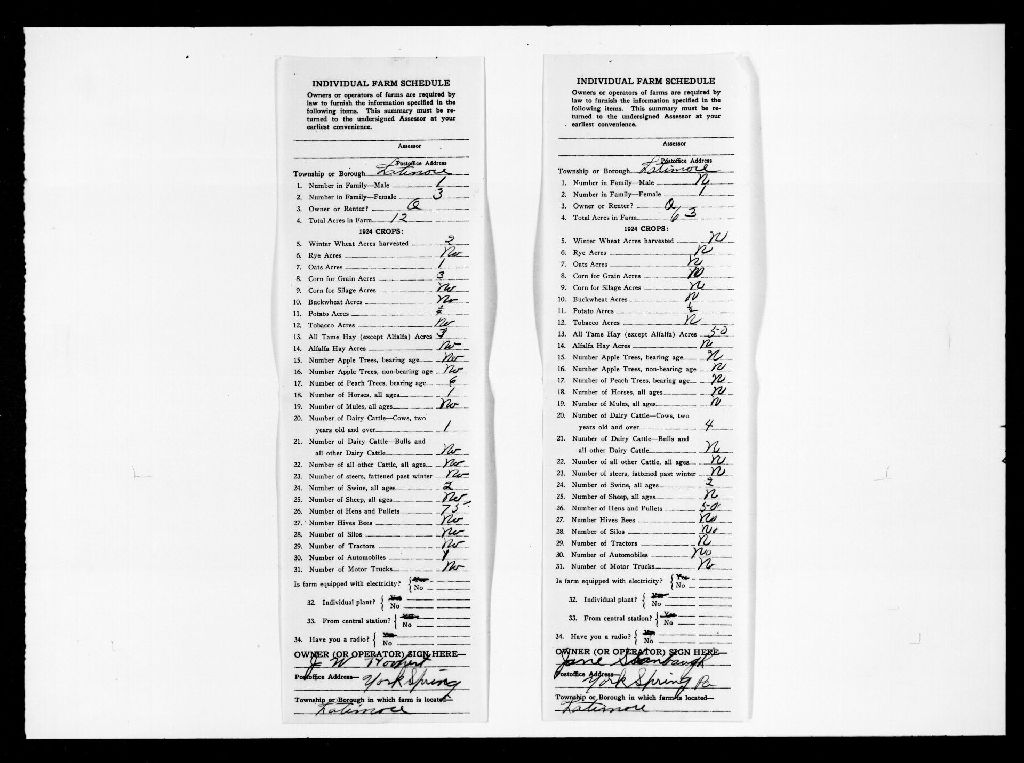 INDIVIDUAL FARM SCHEDULE
Owners or operators of farms are required by
law to furnish the information specified in the
following items. This summary must be re-
turned to the undersigned Assessor at your
earliest convenience.
Assessor
Postoffice Address
Township or Borough Latimore
1. Number in Family—Male 1
2. Number in Family—Female 3
3. Owner or Renter? O
4. Total Acres in Farm 12
1924 CROPS:
5. Winter Wheat Acres harvested 2
6. Rye Acres No
7. Oats Acres 1
8. Corn for Grain Acres 3
9. Corn for Silage Acres No
10. Buckwheat Acres No
11. Potato Acres
12. Tobacco Acres No
13. All Tame Hay (except Alfalfa) Acres 3
14. Alfalfa Hay Acres No
15. Number Apple Trees, bearing age No
16. Number Apple Trees, non-bearing age No
17. Number of Peach Trees, bearing age 6
18. Number of Horses, all ages 1
19. Number of Mules, all ages No
20. Number of Dairy Cattle—Cows, two
years old and over 1
21. Number of Dairy Cattle—Bulls and
all other Dairy Cattle No
22. Number of all other Cattle, all ages No
23. Number of steers, fattened past winter No
24. Number of Swine, all ages 2
25. Number of Sheep, all ages No
26. Number of Hens and Pullets 75
27. Number Hives Bees No
28. Number of Silos No
29. Number of Tractors No
30. Number of Automobiles 1
31. Number of Motor Trucks No
Is farm equipped with electricity? { Yes
No
32. Individual plant? { Yes
No
33. From central station? { Yes
No
34. Have you a radio? { Yes
No
OWNER (OR OPERATOR) SIGN HERE—
J W
Postoffice Address— York Spring
Township or Borough in which farm is located—
Latimore
INDIVIDUAL FARM SCHEDULE
Owners or operators of farms are required by
law to furnish the information specified in the
following items. This summary must be re-
turned to the undersigned Assessor at your
earliest convenience.
Assessor
Postoffice Address
Township or Borough Latimore
1. Number in Family—Male N
2. Number in Family—Female 1
3. Owner or Renter? O
4. Total Acres in Farm 63
1924 CROPS:
5. Winter Wheat Acres harvested N
6. Rye Acres N
7. Oats Acres N
8. Corn for Grain Acres N
9. Corn for Silage Acres N
10. Buckwheat Acres N
11. Potato Acres ½
12. Tobacco Acres N
13. All Tame Hay (except Alfalfa) Acres 50
14. Alfalfa Hay Acres N
15. Number Apple Trees, bearing age N
16. Number Apple Trees, non-bearing age N
17. Number of Peach Trees, bearing age N
18. Number of Horses, all ages N
19. Number of Mules, all ages N
20. Number of Dairy Cattle—Cows, two
years old and over 4
21. Number of Dairy Cattle—Bulls and
all other Dairy Cattle N
22. Number of all other Cattle, all ages N
23. Number of steers, fattened past winter N
24. Number of Swine, all ages 2
25. Number of Sheep, all ages N
26. Number of Hens and Pullets 50
27. Number Hives Bees No
28. Number of Silos No
29. Number of Tractors N
30. Number of Automobiles No
31. Number of Motor Trucks No
Is farm equipped with electricity? { Yes
No
32. Individual plant? { Yes
No
33. From central station? { Yes
No
34. Have you a radio? { Yes
No
OWNER (OR OPERATOR) SIGN HERE—
Jane Stanbaugh
Postoffice Address— York Spring R
Township or Borough in which farm is located—
Latimore